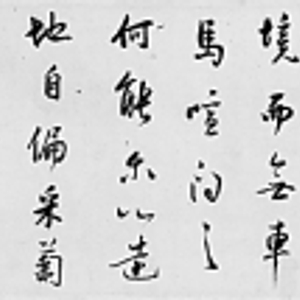 境而無車
馬喧问君
何能尔心遠
地自偏采菊